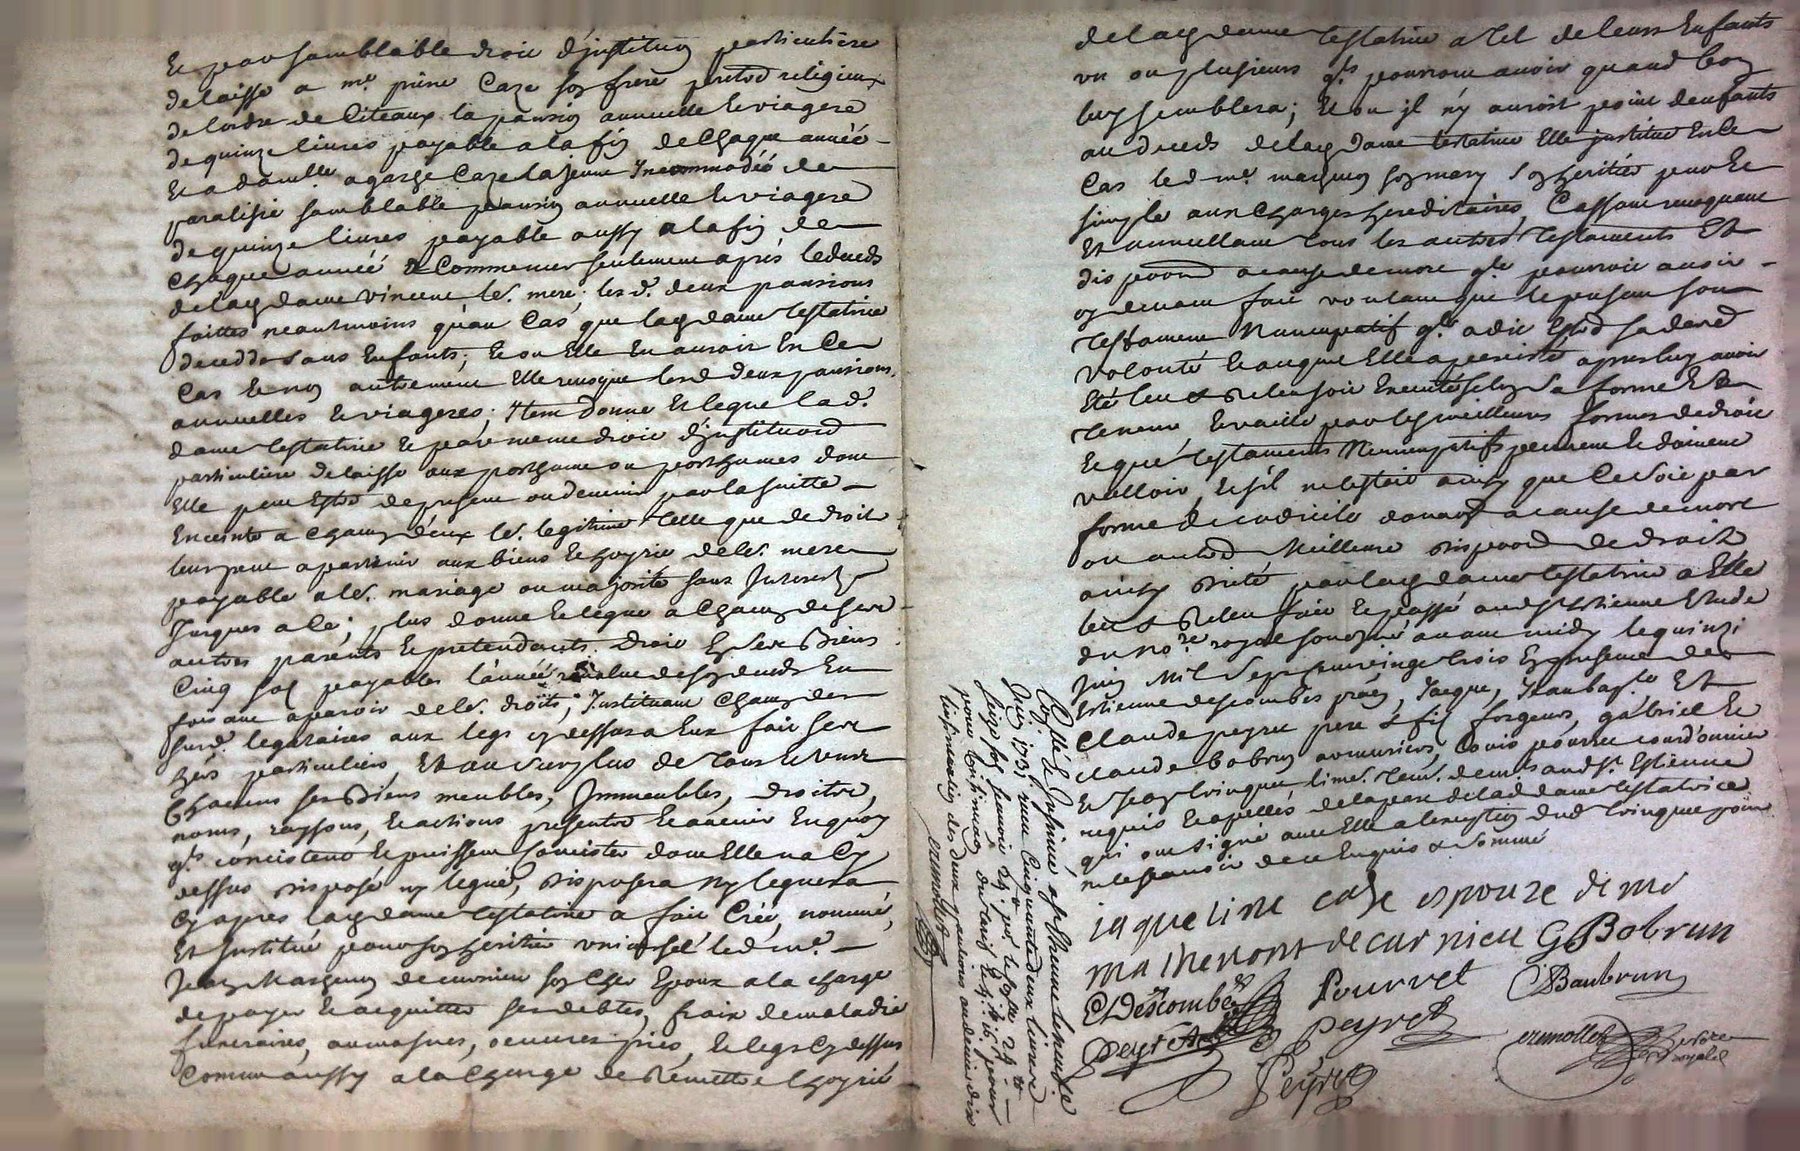 Et par samblable droit d'institution particulière
delaisse a me. pierre Caze son frère prêtre religieux
de lordre de Citeaux la pansion annuelle et viagere
de quinze livres payable a la fin de chaque année
Et a damlle. agathe Caze la jeune Incommodée de
paralisie samblable pansion annuelle et viagere
de quinze livres payable aussy a la fin de
chaque année & Commencer seulement après le deceds
de lad dame vincent le. mere; lesd. deux pansions
faittes neantmoins qu'au Cas que lad dame testatrice
decedda sans Enfants; Et ou Elle En auroit En Ce
Cas Et non autrement Elle revoque lesd deux pansions
annuelles Et viageres. Item donne Et legue lad.
dame testatrice Et par meme droit d'institution
particuliere delaisse aux posthume ou posthumes dont
Elle peut Estre de present ou devenir par la suitte
Enceinte a chacun d'eux le. legitime telle que de droit
leur peut apartenir aux biens Et hoyrie de le. mere
payable a le. mariage ou majorité sans Interest
Jusques a Ce; plus donne Et legue a Chacun de ses
autres parents Et pretendants droit En ses Biens
Cinq sols payables l'année revolue de son deceds En
faisant aparoir de le. droits; Instituant Chacun des
susd. legataires aux legs cy dessus a Eux fait ses
hers particuliers, Et au Surplus de tous Et uns
Chacuns ses Biens meubles, Immeubles, droits,
noms, raysons, Et actions presents Et avenir En quoy
qls. consistent Et puissent Consister dont Elle na Cy
dessus disposé ny legué, disposera ny leguera
Cy apres lad dame testatrice a fait Créé, nommé,
Et Institué pour son heritier universel led me.
Jean Mathenon de curnieu son cher Epoux a la charge
de payer Et acquitter ses debtes, frais de maladie
funeraires, aumosnes, oeuvres pies, Et legs Cy dessus
Comme aussy a la Charge de Remettre lhoyrie
de lad dame testatrice a tel de leurs Enfants
un ou plusieurs qls. pourront avoir quand bon
luy semblera; Et ou jl n'y auroit point denfants
au deceds de lad dame testatrice Elle institue En Ce
Cas led me. mathenon son mary son heritier pur Et
simple aux Charges hereditaires, Cassant revoquant
Et annullant tous les autres testaments Et
disposons a cause de mort qle. pourroit avoir
cy devant fait voulant que le present son
testament Nuncupatif qle. a dit Estre sa derre
volonté Et auquel Elle a persisté apres luy avoir
Eté leu & Releu soit Executé selon sa forme Et
teneur Et vaille par les meilleurs formes de droit
Et que testaments Nuncupatifs peuvent Et doivent
valloir, Et s'il ne lestoit ainsy que Ce soit par
forme de codicile donation a cause de mort
ou autre Meilleure dispoon de droit
ainsy dicté par lad dame testatrice a Elle
leu & Releu fait Et passé aud St Estienne Etude
du nore. royal soussigné avant midy le quinze
Juin Mil Sept Cent vingt trois En presence de
Estienne descombes praen, Jacque, Jean bapte. Et
Claude peyret pere & fils forgeurs, gabriel Et
claude bobrun armuriers, Louis pourret cordonnier
Et Jean Cringue, lime. temoins. demts aud St. Estienne
requis Et apellés de la part de lad dame testatrice
qui ont signé avec Elle a lexception dud Cringue pour
ne le scavoir de ce Enquis & sommé
iaqueline caze epouze de mr
mathenont de curnieu G Bobrun
E Descombes Pourret C Baubrun
Peyret Peyret
Peyret
crumollet nore royal
Collé & Insinué a St Etienne le neufe
Juin 1731 receu Cinquante deux livres